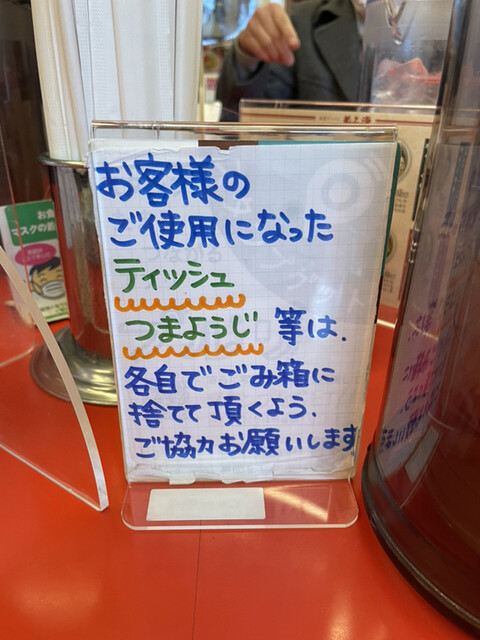 お客様の
ご使用になった
ティッシュ
つまようじ 等は、
各自でごみ箱に
捨てて頂くよう、
ご協力お願いします
お食
マスクの着